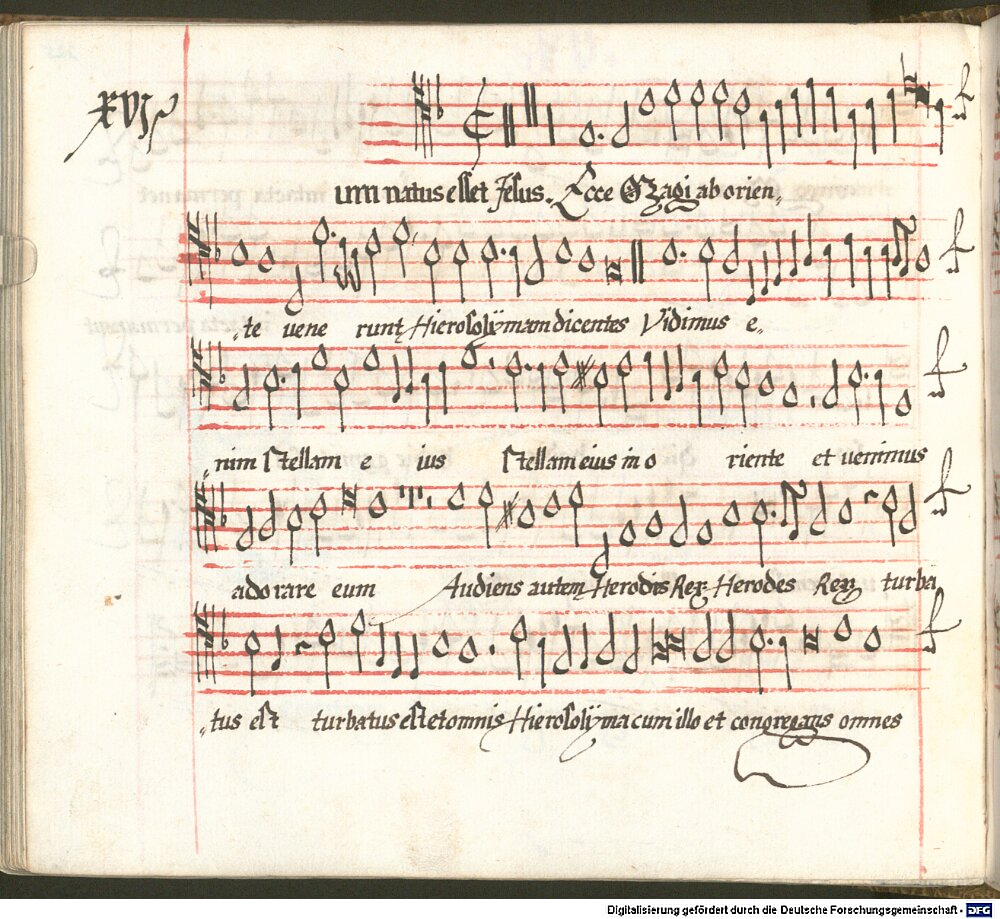 XVJ
um natus esset Jesus. Ecce Magi ab orien,,
,,te uene runt Hierosolÿmam dicentes Vidimus e,,
,,nim Stellam e ius Stellam eius in o riente et uenimus
adorare eum Audiens autem Herodes Rex Herodes Rex turba
,,tus est turbatus est et omnis Hierosolÿma cum illo et congregans omnes
Digitalisierung gefördert durch die Deutsche Forschungsgemeinschaft - DFG